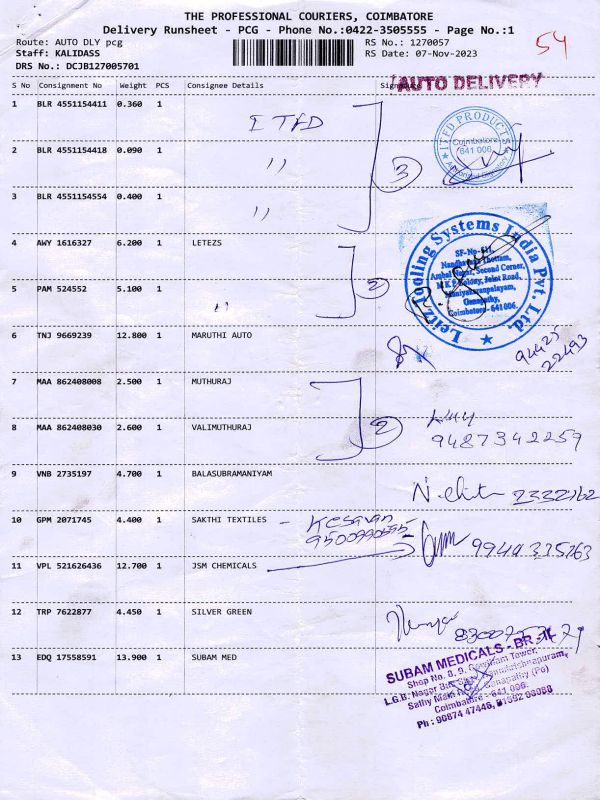 THE PROFESSIONAL COURIERS, COIMBATORE
Delivery Runsheet - PCG - Phone No.:0422-3505555 - Page No.:1
Route: AUTO DLY pcg
RS No.: 1270057
54
Staff: KALIDASS
RS Date: 07-Nov-2023
DRS No.: DCJB127005701
S No Consignment No Weight PCS Consignee Details
AUTO DELIVERY
1 BLR 4551154411 0.360 1 ITFD
2 BLR 4551154418 0.090 1 ,,
3 BLR 4551154554 0.400 1 ,,
3
Coimbatore
641 006
4 AWY 1616327 6.200 1 LETEZS
5 PAM 524552 5.100 1 ,,
2
Leitz Tooling Systems India Pvt. Ltd.
Coimbatore - 641 006.
6 TNJ 9669239 12.800 1 MARUTHI AUTO
94425
22493
7 MAA 862408008 2.500 1 MUTHURAJ
8 MAA 862408030 2.600 1 VALIMUTHURAJ
2
9487342259
9 VNB 2735197 4.700 1 BALASUBRAMANIYAM
2332762
10 GPM 2071745 4.400 1 SAKTHI TEXTILES - Kesavan
11 VPL 521626436 12.700 1 JSM CHEMICALS
12 TRP 7622877 4.450 1 SILVER GREEN
13 EDQ 17558591 13.900 1 SUBAM MED
SUBAM MEDICALS - BR - II
Shop No. 8, 9,
L.G.B. Nagar
Coimbatore - 641 006.
Ph : 90874 47446,